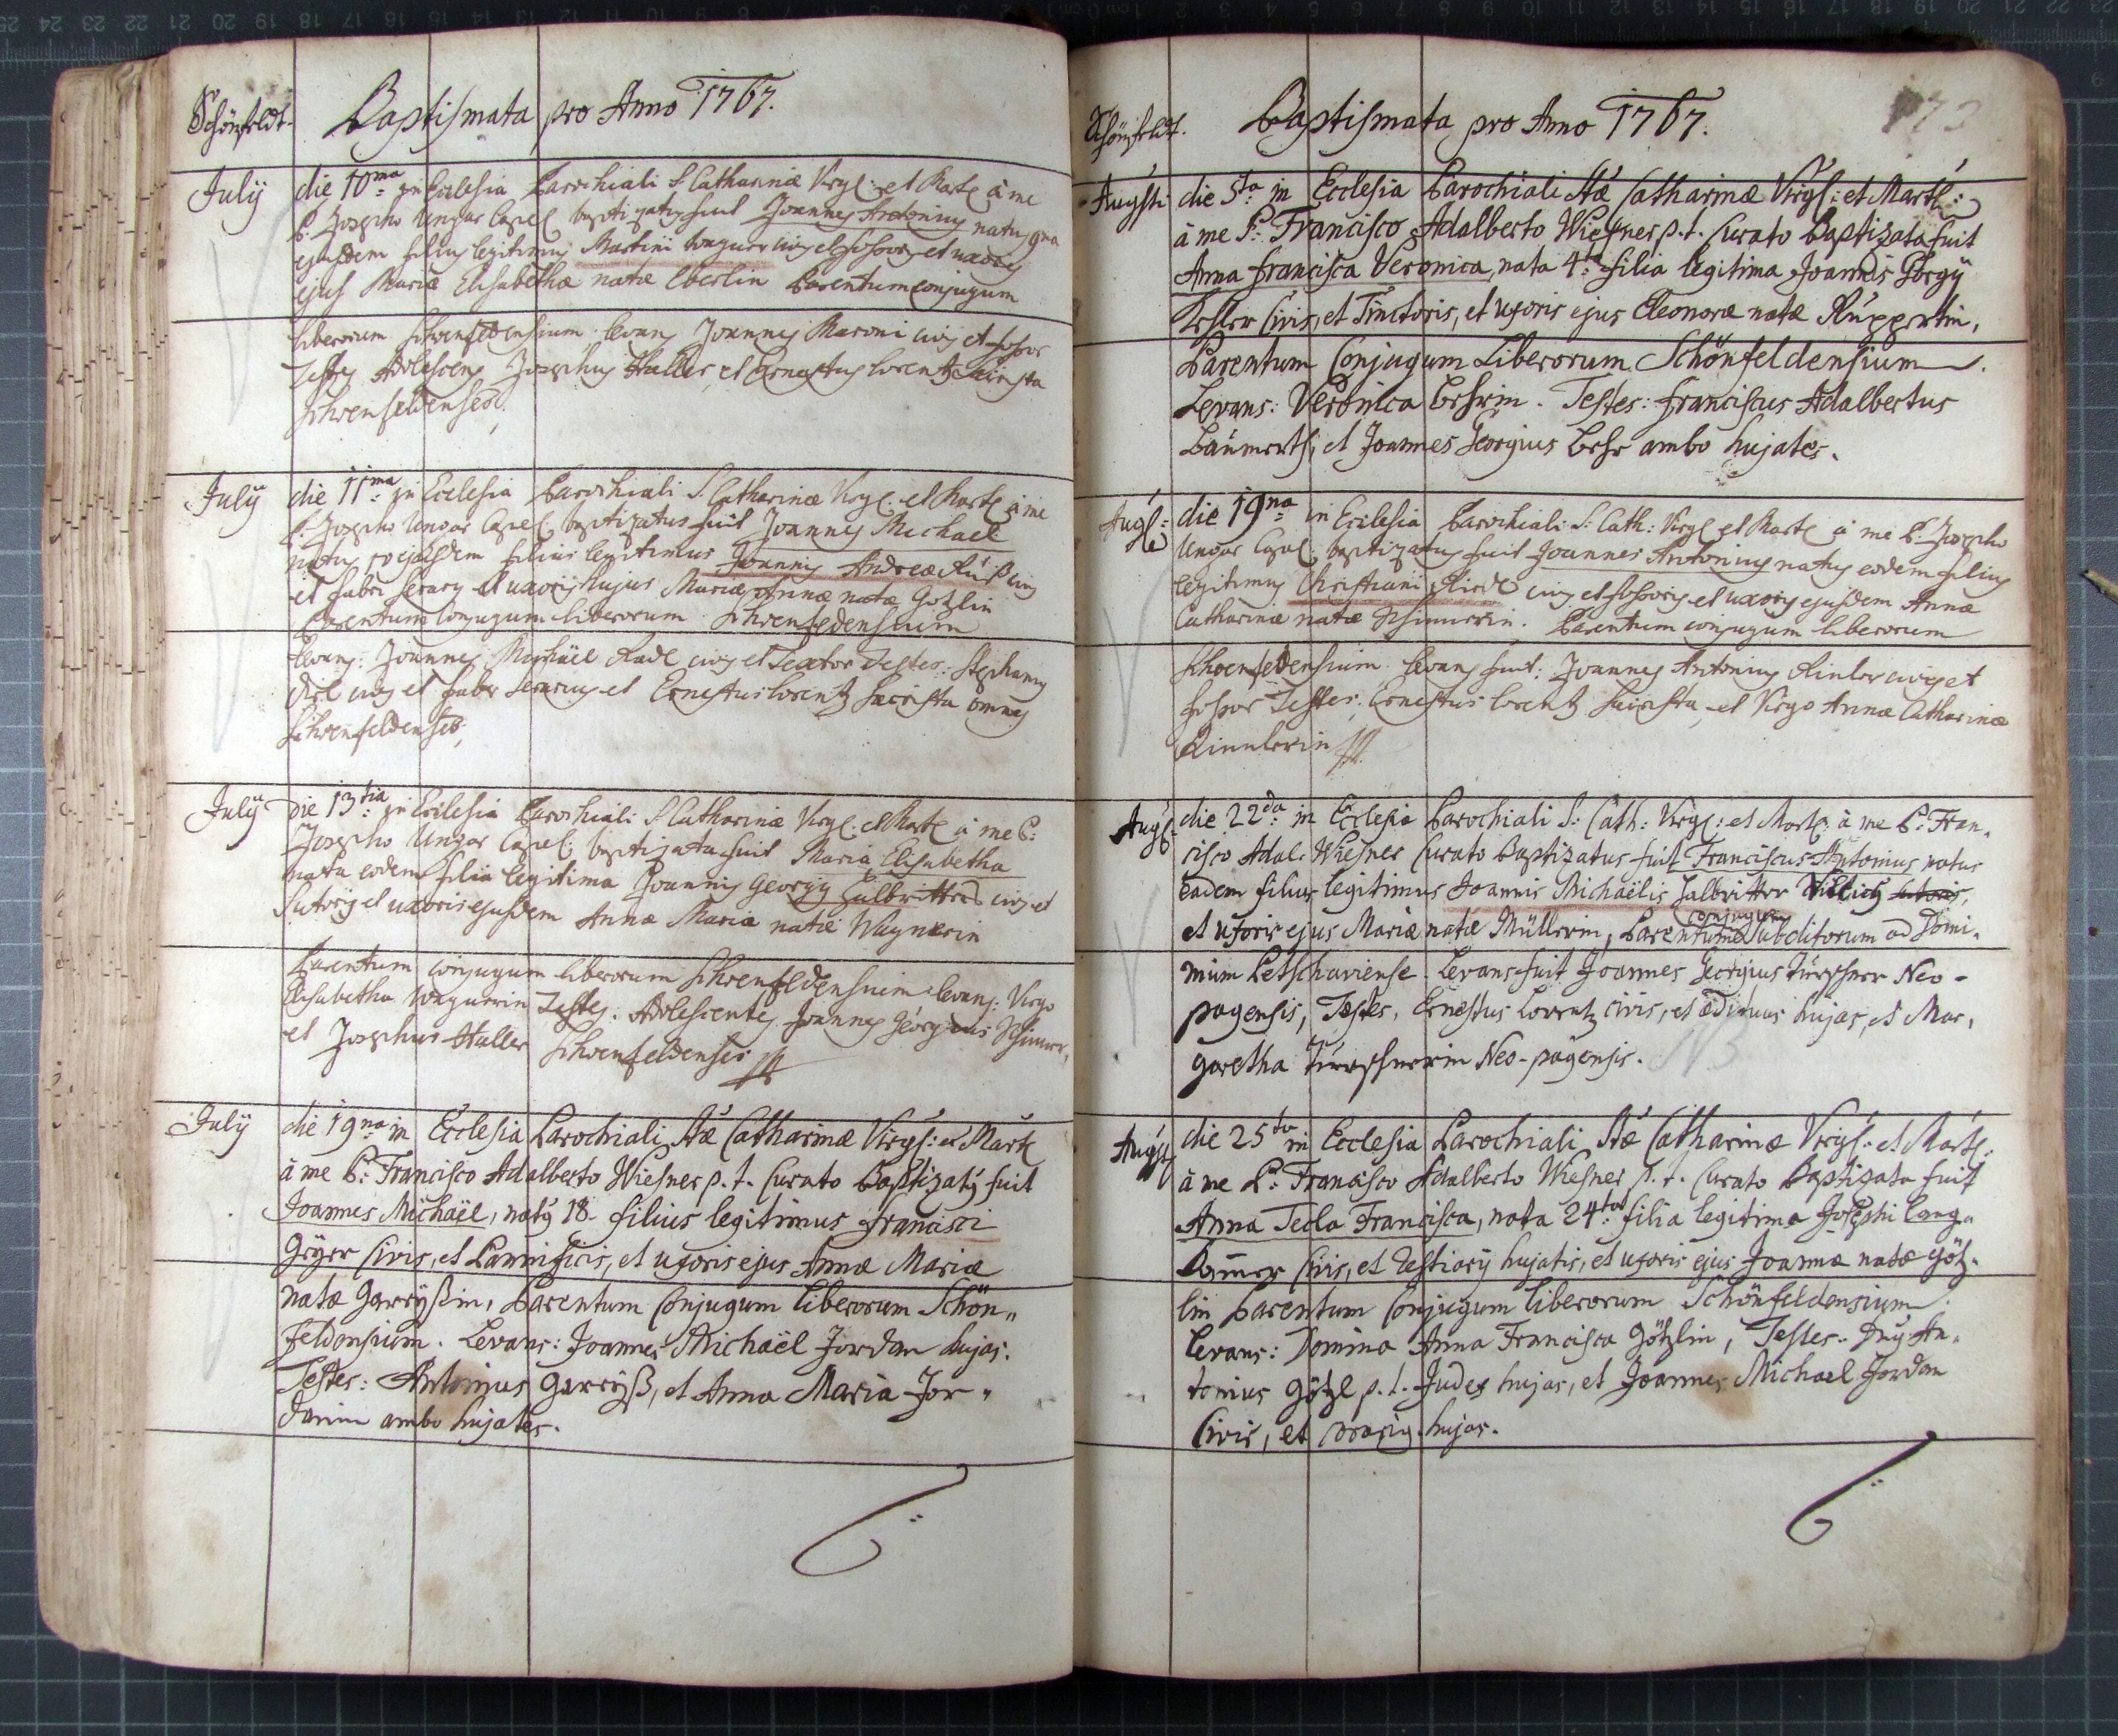 Schönfeldt. Baptismata pro Anno 1767.
July die 10ma in Ecclesia Parochiali S. Catharinæ Virg: et Mart: à me
P. Josepho Ungar Capel: baptizatus fuit Joannes Antonius natus 9na
ejusdem filius legitimus Martini Wagner civis et fossoris et uxoris
ejus Mariæ Elisabethæ natæ Eberlin Parentum conjugum
liberorum Schoenfeldensium. Levans Joannes Maroni civis et fossor
Testes Adolescens Josephus Haller et Ernestus Lorentz Sacrista
Schoenfeldenses.
July die 11ma in Ecclesia Parochiali S. Catharinæ Virg: et Mart: à me
P. Josepho Ungar Capel: baptizatus fuit Joannes Michael
natus ejusdem filius legitimus Joannis Andreæ Ruß civis
et fabri serary et uxoris hujus Mariæ Annæ natæ Götzlin
Parentum conjugum liberorum Schoenfeldensium
Levans: Joannes Michäel Rade civis et Textor Testes: Stephanus
civis et faber serarius et Ernestus Lorentz Sacrista omnes
Schoenfeldenses,
July die 13tia in Ecclesia Parochiali S. Catharinæ Virg: et Mart: à me P:
Josepho Ungar Capel: baptizata fuit Maria Elisabetha
nata eodem filia legitima Joannis Georgy Halbritter civis et
Sutoris et uxoris ejusdem Annæ Mariæ natæ Wagnerin
Parentum conjugum liberorum Schoenfeldensium Levans: Virgo
Elisabetha Wagnerin Testes: Adolescentes Joannes Georgius Schimmer,
et Josephus Haller Schoenfeldenses
July die 19na in Ecclesia Parochiali Stæ Catharinæ Virg: et Mart:
à me P: Francisco Adalberto Wiesner p. t. Curato Baptizatus fuit
Joannes Michäel, natus 18. filius legitimus Francisci
Geyer Civis, et Pannificis, et uxoris ejus Annæ Mariæ
natæ Garreyßin, Parentum Conjugum Liberorum Schön„
feldensium. Levans: Joannes Michäel Jordan hujas.
Testes: Antonius Garreyß, et Anna Maria Jor„
danin ambo hujates.
Schönfeldt. Baptismata pro Anno 1767. 173
Augusti die 5ta in Ecclesia Parochiali Stæ Catharinæ Virg: et Mart:
à me P: Francisco Adalberto Wiesner p. t. Curato Baptizata fuit
Anna Francisca Veronica, nata 4ta filia legitima Joannis Georgy
Lessler Civis, et Tinctoris, et uxoris ejus Eleonoræ natæ Ruppertin,
Parentum Conjugum Liberorum Schönfeldensium.
Levans: Veronica Beherin. Testes: Franciscus Adalbertus
Baumerth, et Joannes Georgius Behr ambo hujates.
Aug: die 19na in Ecclesia Parochiali S: Cath: Virg: et Mart: à me P. Josepho
Ungar Capel: baptizatus fuit Joannes Antonius natus eodem filius
legitimus Christiani Riedl civis et fossoris et uxoris ejusdem Annæ
Catharinæ natæ Schimmerin. Parentum conjugum liberorum
Schoenfeldensium. Levans fuit: Joannes Antonius Rinler civis et
fossor Testes: Ernestus Lorentz Sacrista, et Virgo Annæ Catharinæ
Rinnlerin
Aug: die 22da in Ecclesia Parochiali S: Cath: Virg: et Mart: à me P: Fran„
cisco Adal: Wiesner Curato Baptizatus fuit Franciscus Antonius natus
eadem filius legitimus Joannis Michäelis Halbritter Villici sutoris,
conjugum
et uxoris ejus Mariæ natæ Müllerin, Parentum Subditorum ad Domi„
nium Petschaviense. Levans fuit Joannes Georgius Türschner Neo-
pagensis, Testes, Ernestus Lorentz civis, et ædituus hujas, et Mar„
garetha Türschnerin Neo-pagensis.
Aug: die 25ta in Ecclesia Parochiali Stæ Catharinæ Virg: et Mart:
à me P: Francisco Adalberto Wiesner p. t. Curato Baptizata fuit
Anna Tecla Francisca, nata 24ta filia legitima Josephi Lang„
hamer Civis, et Testiary hujatis, et uxoris ejus Joannæ natæ Götz„
lin Parentum Conjugum Liberorum Schönfeldensium.
Levans: Domina Anna Francisca Götzlin, Testes: An„
tonius Götzl p. t. Judex hujas, et Joannes Michael Jordan
Civis, et hujas.